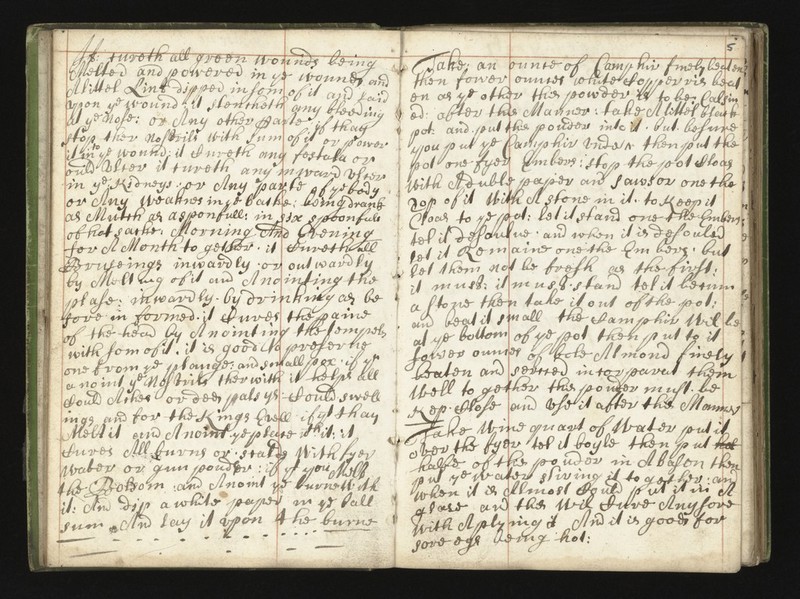 It Cureth all green wounds being
Melted and powered in ye wounde and
A littel Lint dipped in som of it and laid
upon ye wound: it stencheth any bleeding
at ye Nose: or Any other parte if thay
stop ther Nostrils with sum of it or power
it in ye wound: it Cureth any festola or
ould Ulser it Cureth any inward Ulser
in ye Kidneys: or Any parte of ye body
or Any weaknes in ye backe: being drank
as Mutch as a sponfull: in six sponfuls
of hot sacke. Morning And Evening
for A Month to gether. it Cureth all
Bruseings inwardly: or outwardly
by Melting of it and Anointing the
plase: inwardly. by drinking as be
fore in formed: it Cures the paine
of the head by Anointing the tempels
with som of it. it is good to preserve
one from ye plauge: and small pox. if ye
anoint ye Nostrils ther with it helps all
Could Aches or ded palsys. Could swell
ings and for the Kings Evell. if yt thay
Melt it and Anoint ye place with it: it
Cures All burns or stalds With fyer
Water or gun pouder: if if you Melt
the Botsom and Anoint ye burne With
it: And dip a white paper in ye ball
sum. And lay it upon the burne
5
Take: an ounce of Camphir finely beaten
then fower ounces white Copperris beat
en as ye other this powder is to be Calsin
ed. after this Manner: take A littel black
pot. and put this pouder into it. but before
you put ye Camphir Under then put the
pot one fyer Embers: stop the pot Cloas
With A duble paper and sawsor one the
top of it With A stone in it. to Keep it
Cloas to ye pot: let it stand one the Embers
tel it desolve. and when it is desolved
let it Remaine one the Embers. but
let them not be fresh as the first:
it must: it must stand tel it beturn
a stone then take it out of the pot:
and beat it small the Camphir Wil be
at ye bottom of ye pot then put to it
fower ounces of bole Almond finely
beaten and serced incorparat them
Well to gether this pouder must be
Kep Close and Use it after this Manner
Take Wine quart of Water put it
over the fyer tel it boyle then put
halfe of this poudor in A bason then
put ye water stiring it to gether: and
when it is Almost Could put it in A
glase and this Wil Cure Any sore
With Aplying it And it is good for
sore eys being hot: